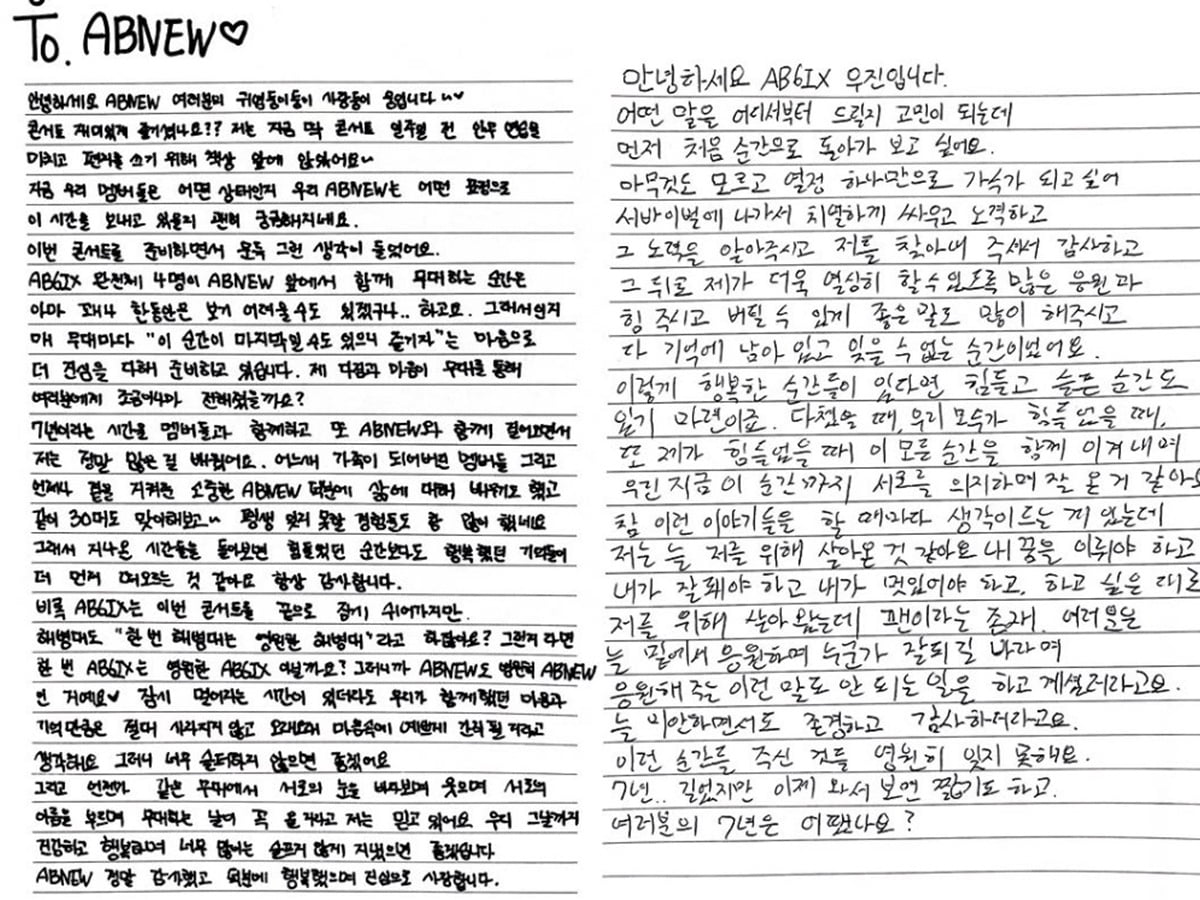 To. ABNEW♡
안녕하세요 ABNEW 여러분의 귀염둥이둥이 사랑둥이 웅입니다
콘서트 재미있게 즐기셨나요?? 저는 지금 막 콘서트 일주일 전 안무 연습을
마치고 편지를 쓰기 위해 책상 앞에 앉았어요~
지금 우리 멤버들은 어떤 상태인지 우리 ABNEW는 어떤 표정으로
이 시간을 보내고 있을지 괜히 궁금해지네요.
이번 콘서트를 준비하면서 문득 그런 생각이 들었어요.
AB6IX 완전체 4명이 ABNEW 앞에서 함께 무대하는 순간은
아마 꽤나 한동안은 보기 어려울 수도 있겠구나.. 하고요. 그래서인지
매 무대마다 "이 순간이 마지막일 수도 있으니 즐기자"는 마음으로
더 진심을 다해 준비하고 있습니다. 제 다짐과 마음이 무대를 통해
여러분에게 조금이나마 전해졌을까요?
7년이라는 시간을 멤버들과 함께하고 또 ABNEW와 함께 걸어오면서
저는 정말 많은 걸 배웠어요. 어느새 가족이 되어버린 멤버들 그리고
언제나 곁을 지켜준 소중한 ABNEW 덕분에 삶에 대해 배우기도 했고
같이 30대도 맞이해보고~ 평생 잊지 못할 경험들도 참 많이 했네요
그래서 지나온 시간들을 돌아보면 힘들었던 순간보다도 행복했던 기억들이
더 먼저 떠오르는 것 같아요 항상 감사합니다.
비록 AB6IX는 이번 콘서트를 끝으로 잠시 쉬어가지만.
해병대도 "한 번 해병대는 영원한 해병대"라고 하잖아요? 그런거 라면
한 번 AB6IX는 영원한 AB6IX 아닐까요? 그러니까 ABNEW도 영원히 ABNEW
인 거예요♥ 잠시 멀어지는 시간이 있더라도 우리가 함께했던 마음과
기억만큼은 절대 사라지지 않고 오래오래 마음속에 예쁘게 간직될 거라고
생각해요 그러니 너무 슬퍼하지 않으면 좋겠어요
그리고 언젠가 같은 무대에서 서로의 눈을 바라보며 웃으며 서로의
이름을 부르며 무대하는 날이 꼭 올거라고 저는 믿고 있어요 우리 그날까지
건강하고 행복하며 너무 많이는 슬프지 않게 지냈으면 좋겠습니다
ABNEW 정말 감사했고 덕분에 행복했으며 진심으로 사랑합니다.
안녕하세요 AB6IX 우진입니다.
어떤 말을 어디서부터 드릴지 고민이 되는데
먼저 처음 순간으로 돌아가 보고 싶어요.
아무것도 모르고 열정 하나만으로 가수가 되고 싶어
서바이벌에 나가서 치열하게 싸우고 노력하고
그 노력을 알아주시고 저를 찾아내 주셔서 감사하고
그 뒤로 제가 더욱 열심히 할 수 있도록 많은 응원과
힘 주시고 버틸 수 있게 좋은 말도 많이 해주시고
다 기억에 남아 있고 잊을 수 없는 순간이었어요.
이렇게 행복한 순간들이 있다면 힘들고 슬픈 순간도
있기 마련이죠. 다쳤을 때, 우리 모두가 힘들었을 때,
또 제가 힘들었을 때 이 모든 순간을 함께 이겨내며
우린 지금 이 순간까지 서로를 의지하며 잘 온 거 같아요
참 이런 이야기들을 할 때마다 생각이 드는 게 있는데
저는 늘 저를 위해 살아온 것 같아요 내 꿈을 이뤄야 하고
내가 잘돼야 하고 내가 멋있어야 하고, 하고 싶은 대로
저를 위해 살아 왔는데 팬이라는 존재, 여러분은
늘 밑에서 응원하며 누군가 잘되길 바라며
응원해 주는 이런 말도 안 되는 일을 하고 계셨더라고요.
늘 미안하면서도 존경하고 감사하더라고요.
이런 순간들 주신 것들 영원히 잊지 못해요.
7년.. 길었지만 이제 와서 보면 짧기도 하고.
여러분의 7년은 어땠나요?